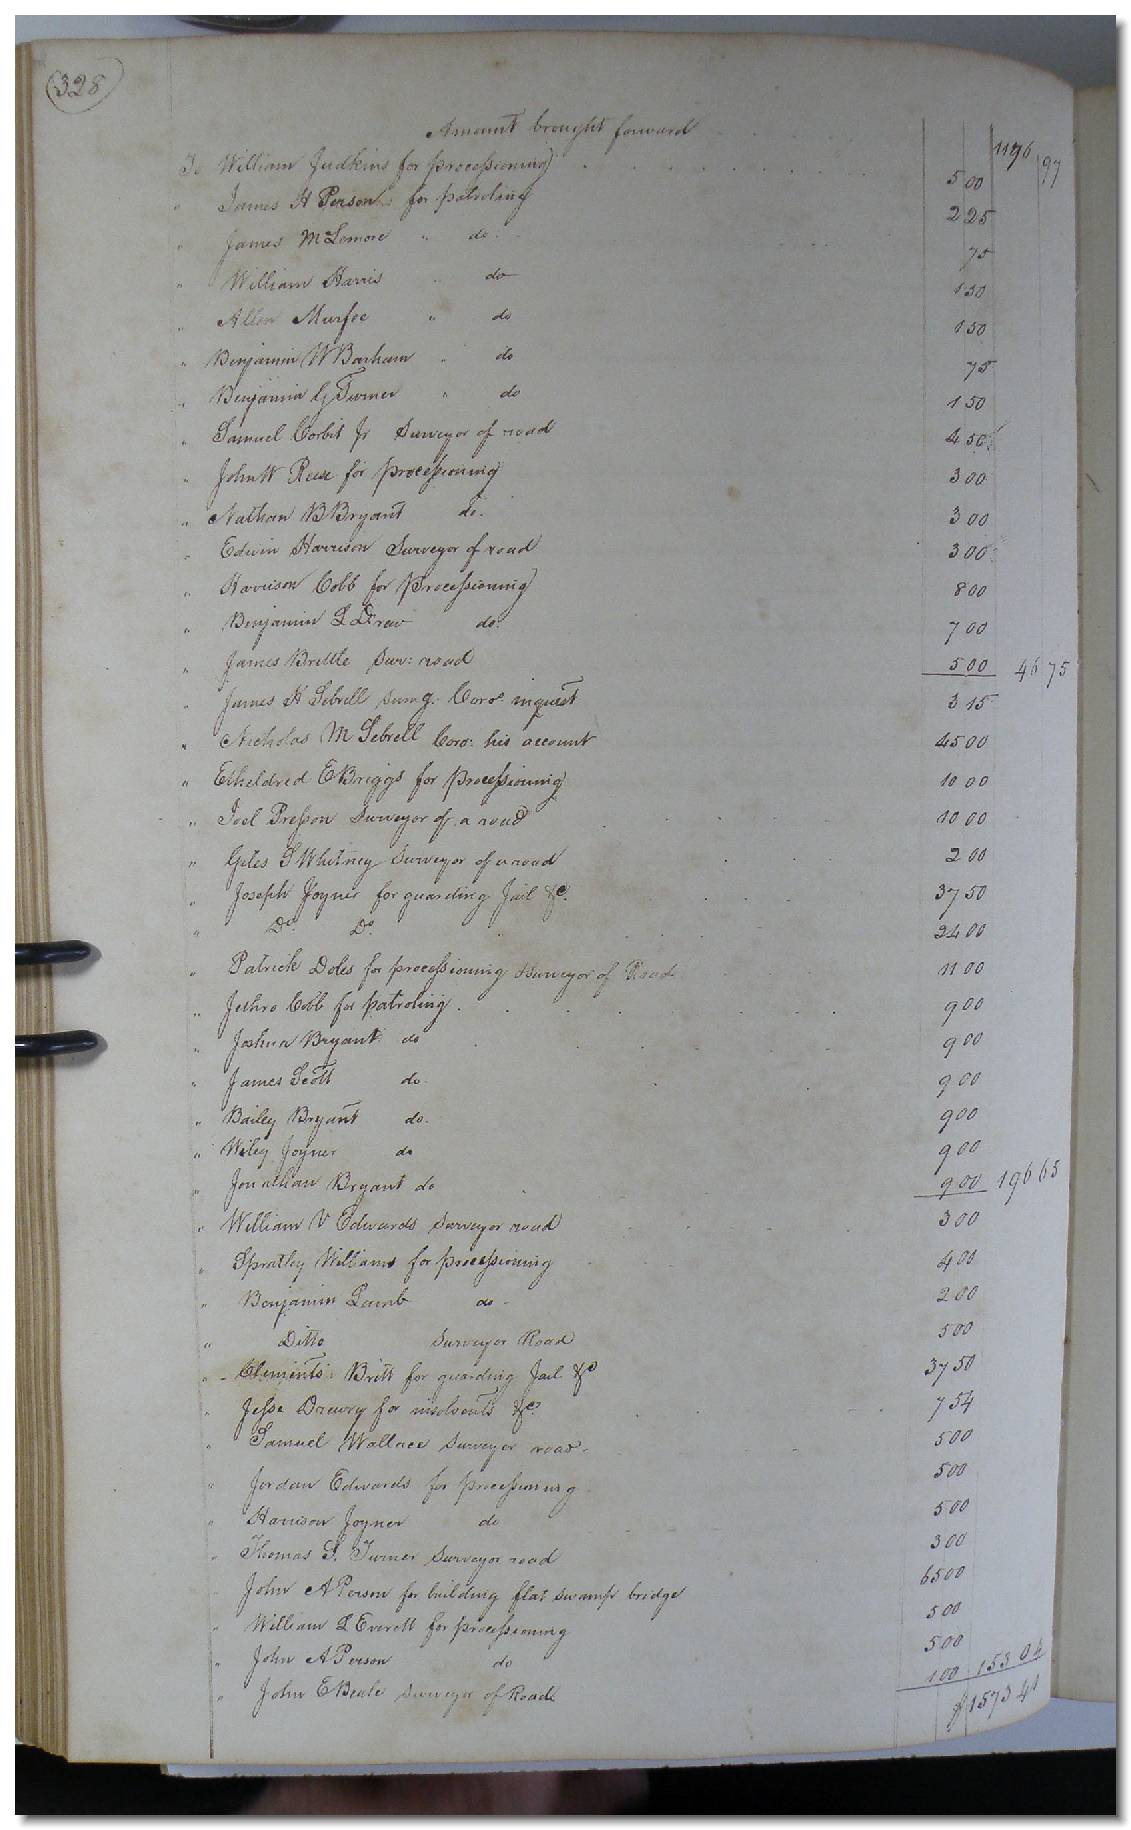 328
Amount brought forward 1196 97
To William Judkins for processioning 5 00
" James H Person for patroling 2 25
" James McLemore " do. 75
" William Harris " do 1 50
" Allen Murfee " do 1 50
" Benjamin W Barham " do 75
" Benjamin G Turner " do 1 50
" Samuel Corbit Jr Surveyor of road 4 50
" John W Reese for processioning 3 00
" Nathan B Bryant do. 3 00
" Edwin Harrison Surveyor of road 3 00
" Harrison Cobb for Processioning 8 00
" Benjamin L Drew do. 7 00
" James Brittle Sur: road 5 00 46 75
" James H Sebrell sumg. Coro. inquest 3 15
" Nicholas M Sebrell Coro: his account 45 00
" Etheldred E Briggs for Processioning 10 00
" Joel Presson Surveyor of a road 10 00
" Giles S Whitney Surveyor of a road 2 00
" Joseph Joyner for guarding Jail &c. 37 50
" Do. Do. 24 00
" Patrick Doles for processioning & Surveyor of Road 11 00
" Jethro Cobb for patroling. 9 00
" Joshua Bryant do 9 00
" James Scott do. 9 00
" Bailey Bryant do. 9 00
" Wiley Joyner do 9 00
" Jonathan Bryant do 9 00 196 65
" William V Edwards Surveyor road 3 00
" Spratley Williams for processioning 4 00
" Benjamin Lamb do - 2 00
" Ditto Surveyor Road 5 00
" Clements Britt for guarding Jail &c 37 50
" Jesse Drewry for insolvents &c. 7 54
" Samuel Wallace Surveyor road. 5 00
" Jordan Edwards for processioning 5 00
" Harrison Joyner do 5 00
" Thomas S. Turner Surveyor road 3 00
John A Person for building flat swamp bridge 65 00
" William L Everett for processioning 5 00
" John A Person do 5 00
" John E Beale Surveyor of Road 1 00 153 04
$1573 41